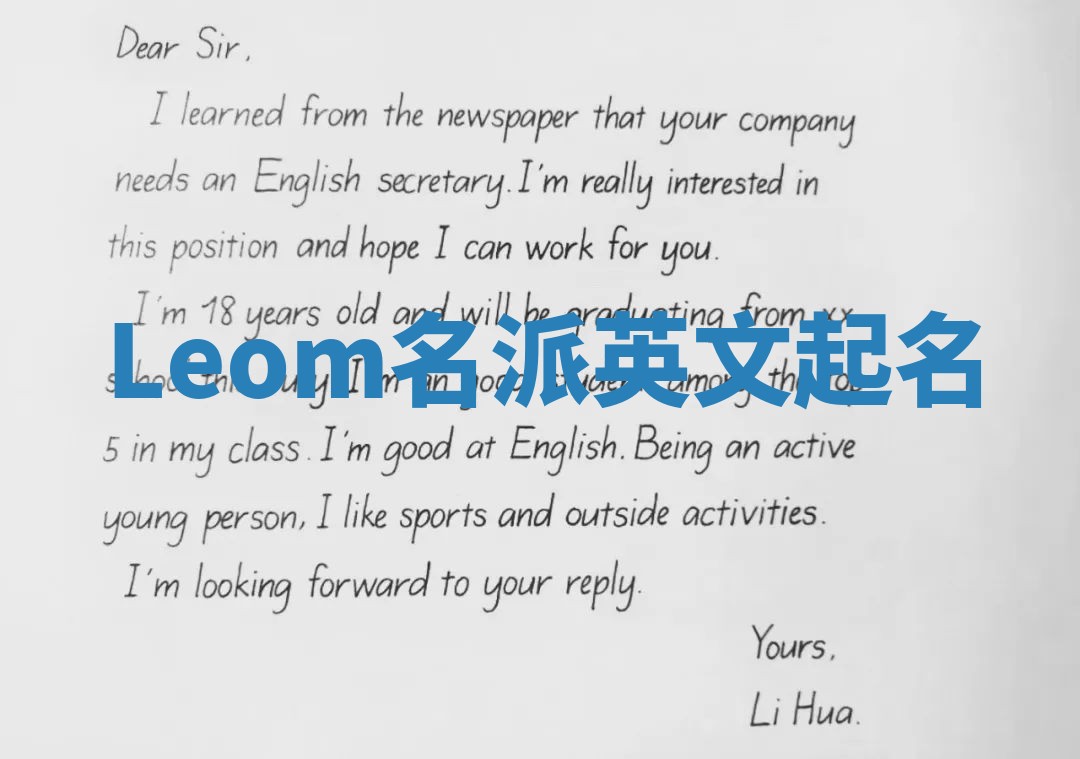 Dear Sir,
I learned from the newspaper that your company
needs an English secretary. I'm really interested in
this position and hope I can work for you.
I'm 18 years old and will be graduating from xx
Leom名派英文起名
school this July. I'm an good student among the top
5 in my class. I'm good at English. Being an active
young person, I like sports and outside activities.
I'm looking forward to your reply.
Yours,
Li Hua.